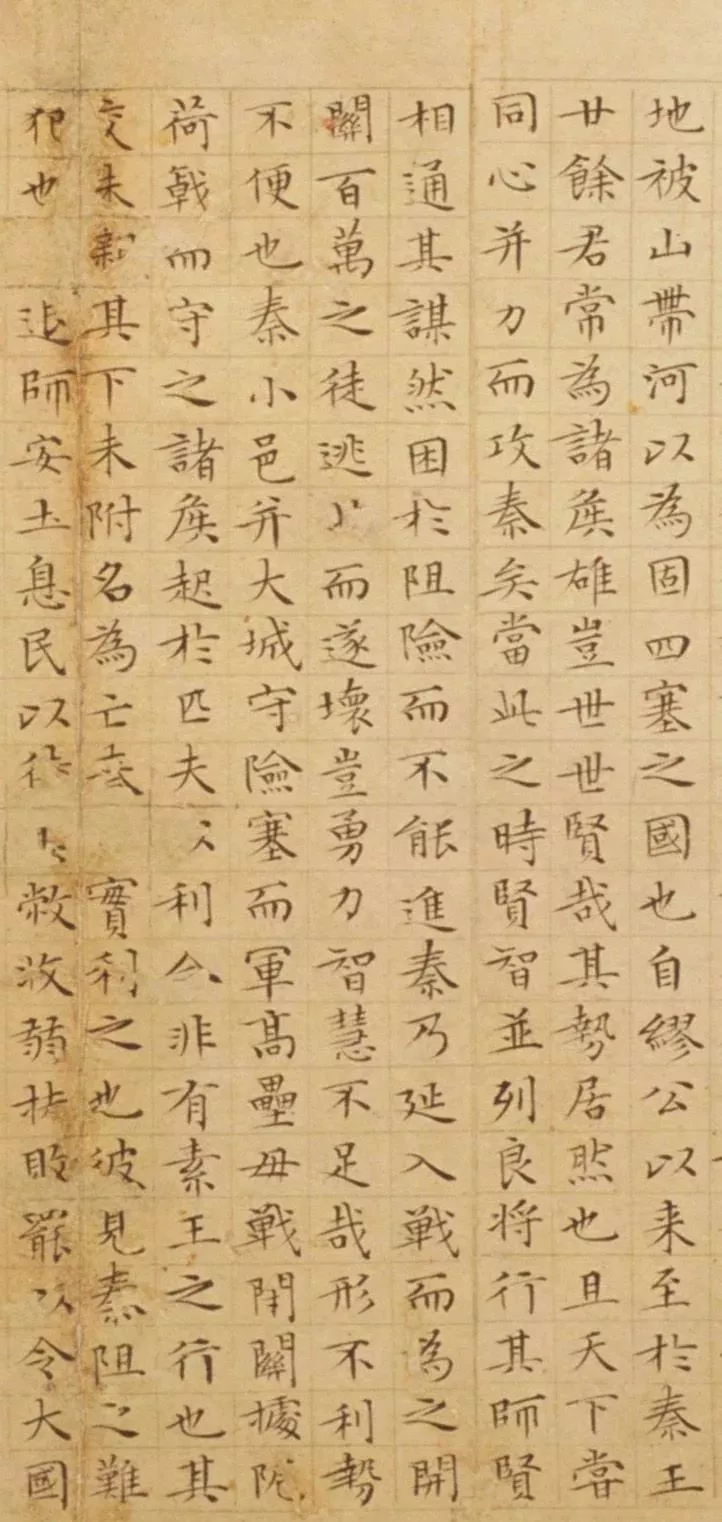 地被山帶河以為固四塞之國也自繆公以来至於秦王
廿餘君常為諸侯雄豈世世賢哉其勢居然也且天下甞
同心并力而攻秦矣當此之時賢智並列良将行其師賢
相通其謀然困於阻險而不能進秦乃延入戰而為之開
關百萬之徒逃而遂壞豈勇力智慧不足哉形不利勢
不便也秦小邑并大城守險塞而軍高壘毋戰閉關據阨
荷戟而守之諸侯起於匹夫利合非有素王之行也其
交未親其下未附名為亡秦實利之也彼見秦阻之難
犯也退師安土息民以待敝收弱扶敗罷以令大國